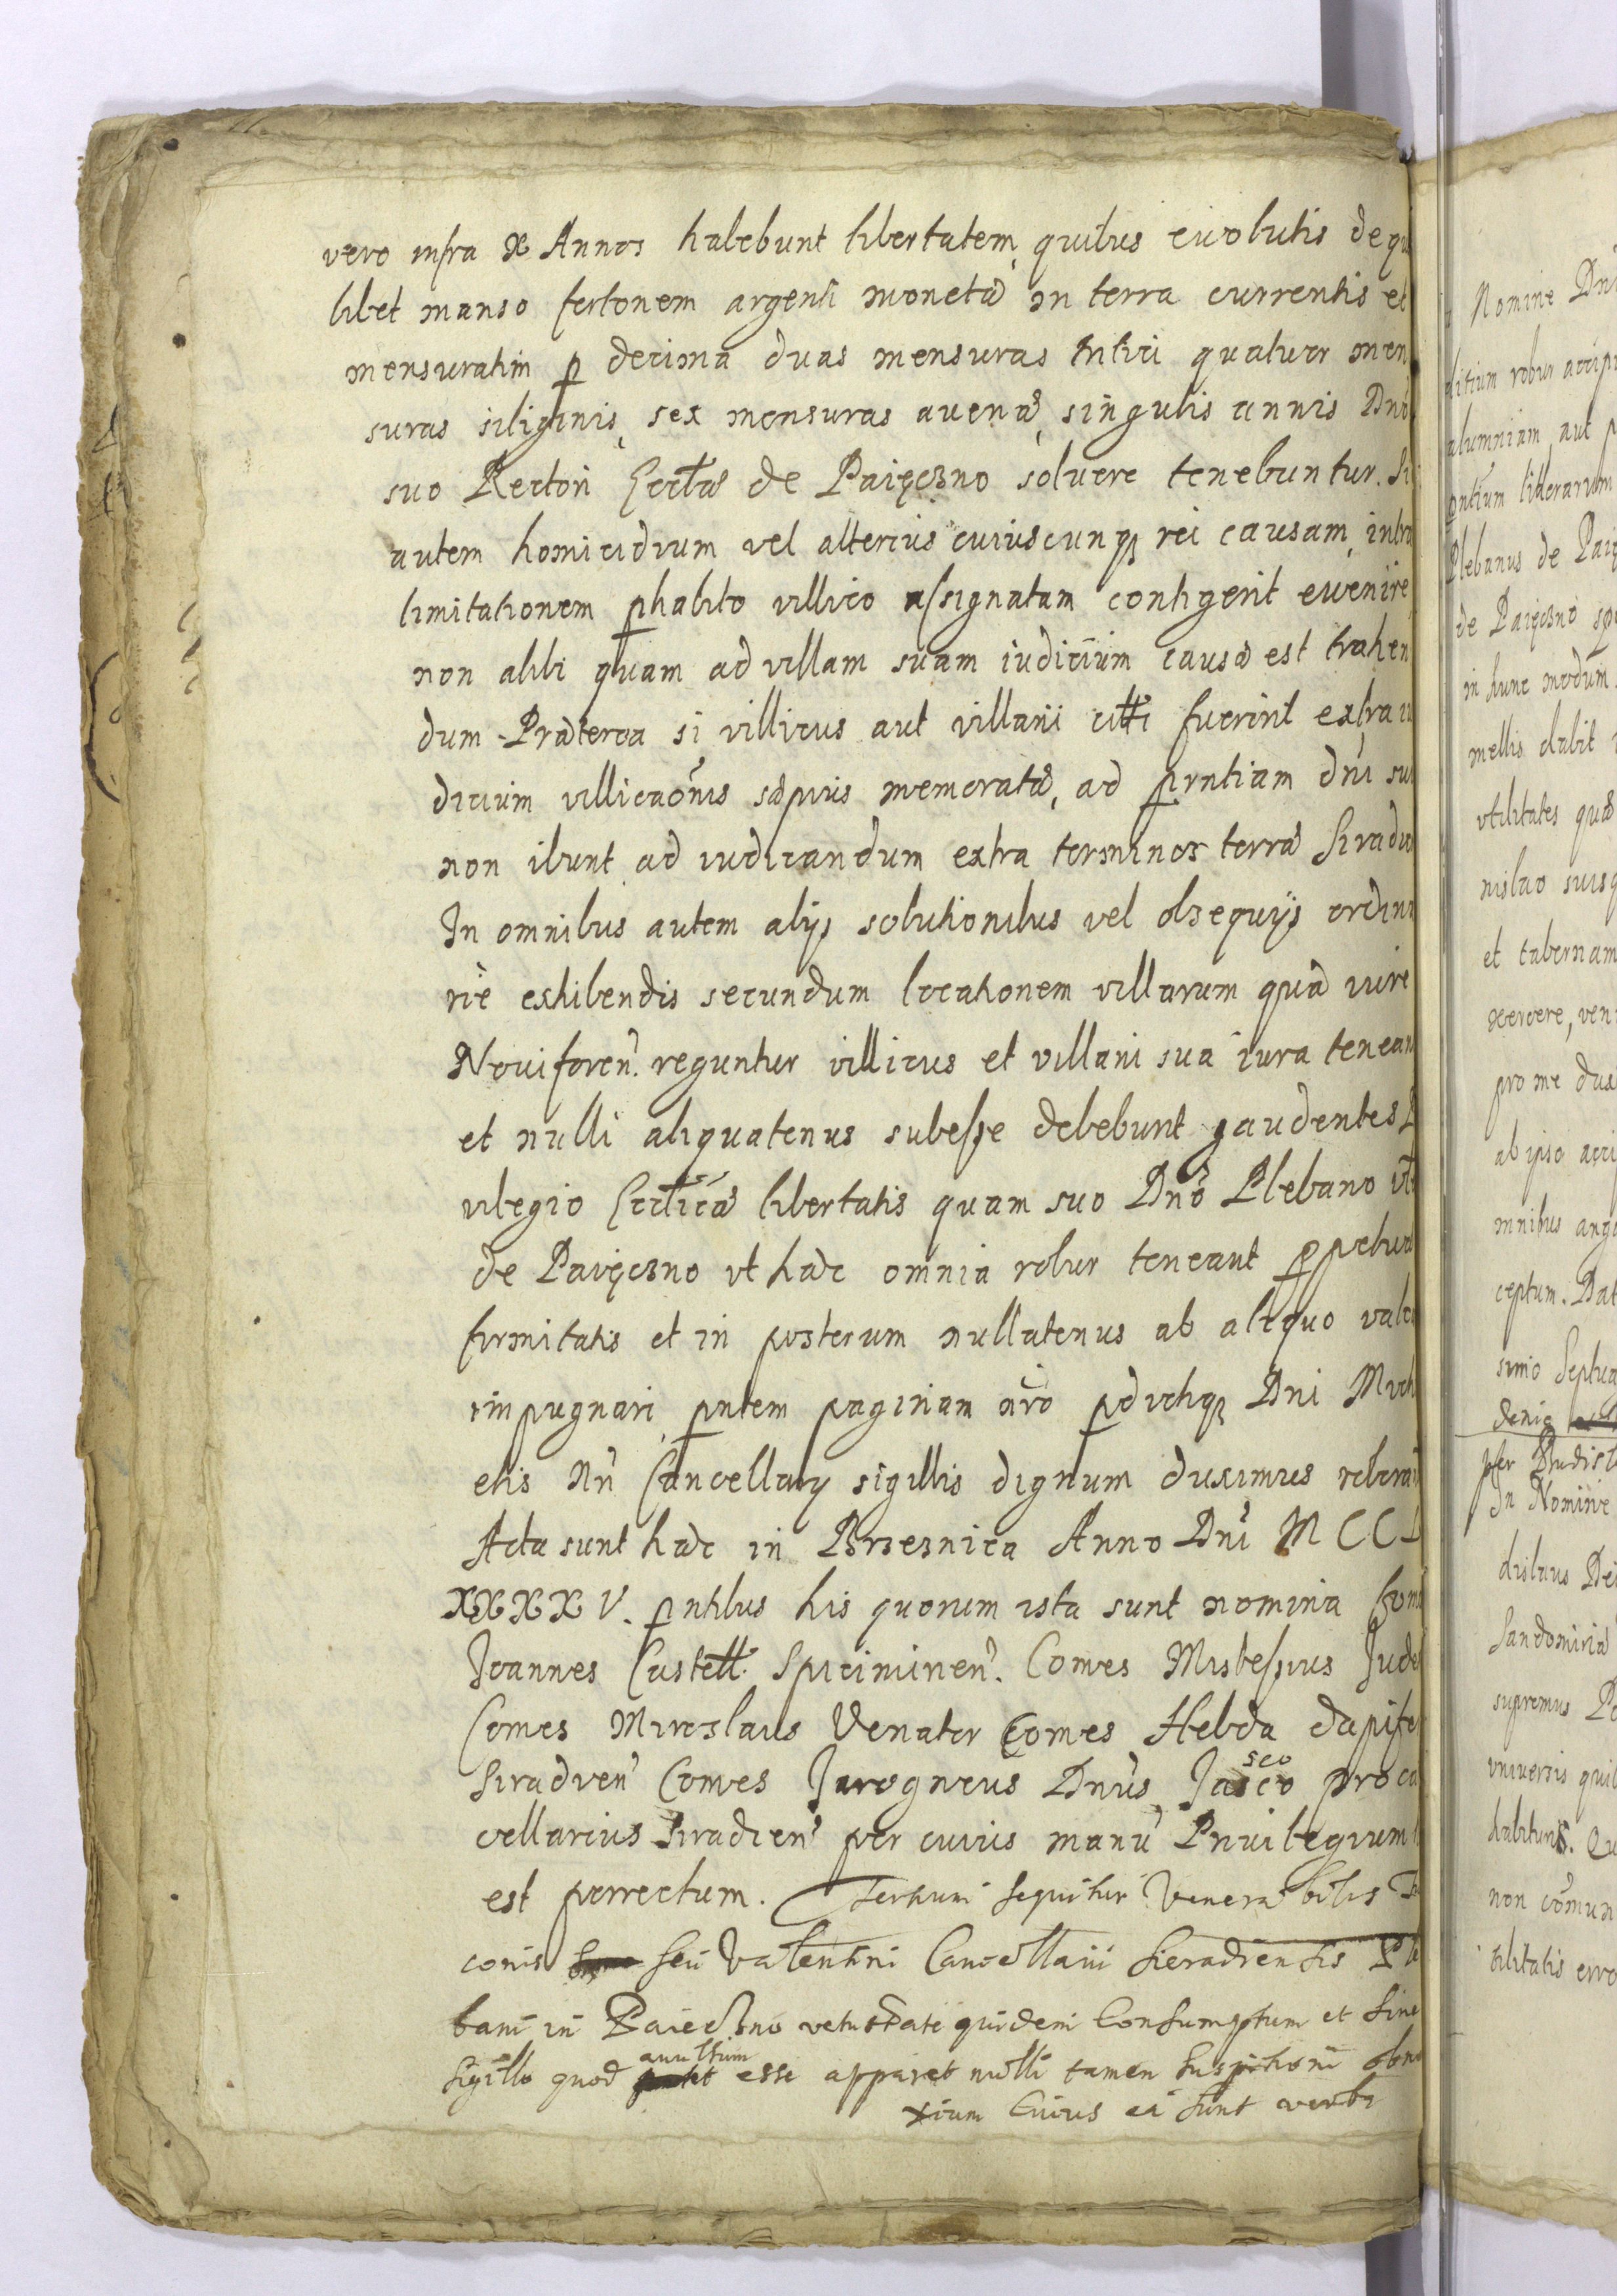 vero infra X Annos habebunt libertatem, quibus evolutis de qu
libet manso fertonem argenti monetæ in terra currentis et
mensuratim p decima duas mensuras tritici quatuor men
suras siliginis, sex mensuras avenæ, singulis annis Dno
suo Rectori Ecctæ de Paięczno solvere tenebuntur. Si
autem homicidium vel alterius cuiuscunq rei causam, intra
limitationem phabito villico assignatam contigerit evenire
non alibi quam ad villam suam iudicium causæ est trahen
dum. Præterea si villicus aut villani citti fuerint extra iu
dicium villicaōnis sæpius memoratæ, ad prntiam dni sui
non ibunt ad iudicandum extra terminos terræ Siradie
In omnibus autem alijs solutionibus vel obsequijs ordina
riè exhibendis secundum locationem villarum quæ iure
Noviforen. reguntur villicus et villani sua iura teneant
et nulli aliquatenus subesse debebunt gaudentes P
vilegio Ecctīcæ libertatis quam suo Dno Plebano
de Paięczno vt hæc omnia robur teneant ppetuæ
firmitatis et in posterum nullatenus ab aliquo valea
impugnari, pntem paginam nrō pdictiq Dni Mich
elis Nri Cancellarij sigillis dignum duximus roborari
Acta sunt hæc in Brzeznica Anno Dni M CC L
XXXX V. pntibus his quorum ista sunt nomina Com
Joannes Castell. Spiciminen. Comes Mistessius Jude
Comes Miroslaus Venator Comes Hebda dapife
Siradien Comes Jarogneus Dnus Jasco sco proca
cellarius Siradien per cuius manu Privilegium
est porrectum. Tertium sequitur Venerabilis
conis seu Valentini Cancellarii Sieradiensis Ple
bani in Paieczno vetustate quidem Consumptum et Sine
Sigillo quod avulsum esse apparet nulli tamen Suspitioni obno
xium Cuius ea sunt verba
Nomine Dni
ditium robur accipi
alumniam aut p
ontium litterarum
Plebanus de Paię
de Paięczno
in hunc modum
mellis dabit
vtilitates quæ
nislao suisq
et tabernam
xercere, ven
pro me dux
ab ipso acci
mnibus anga
ceptum. Dat
simo Septua
denie
In Nomine
dislaus Dei
Sandomiriæ
supremus
vniversis quib
habituris. Qu
non comun
bilitatis erro